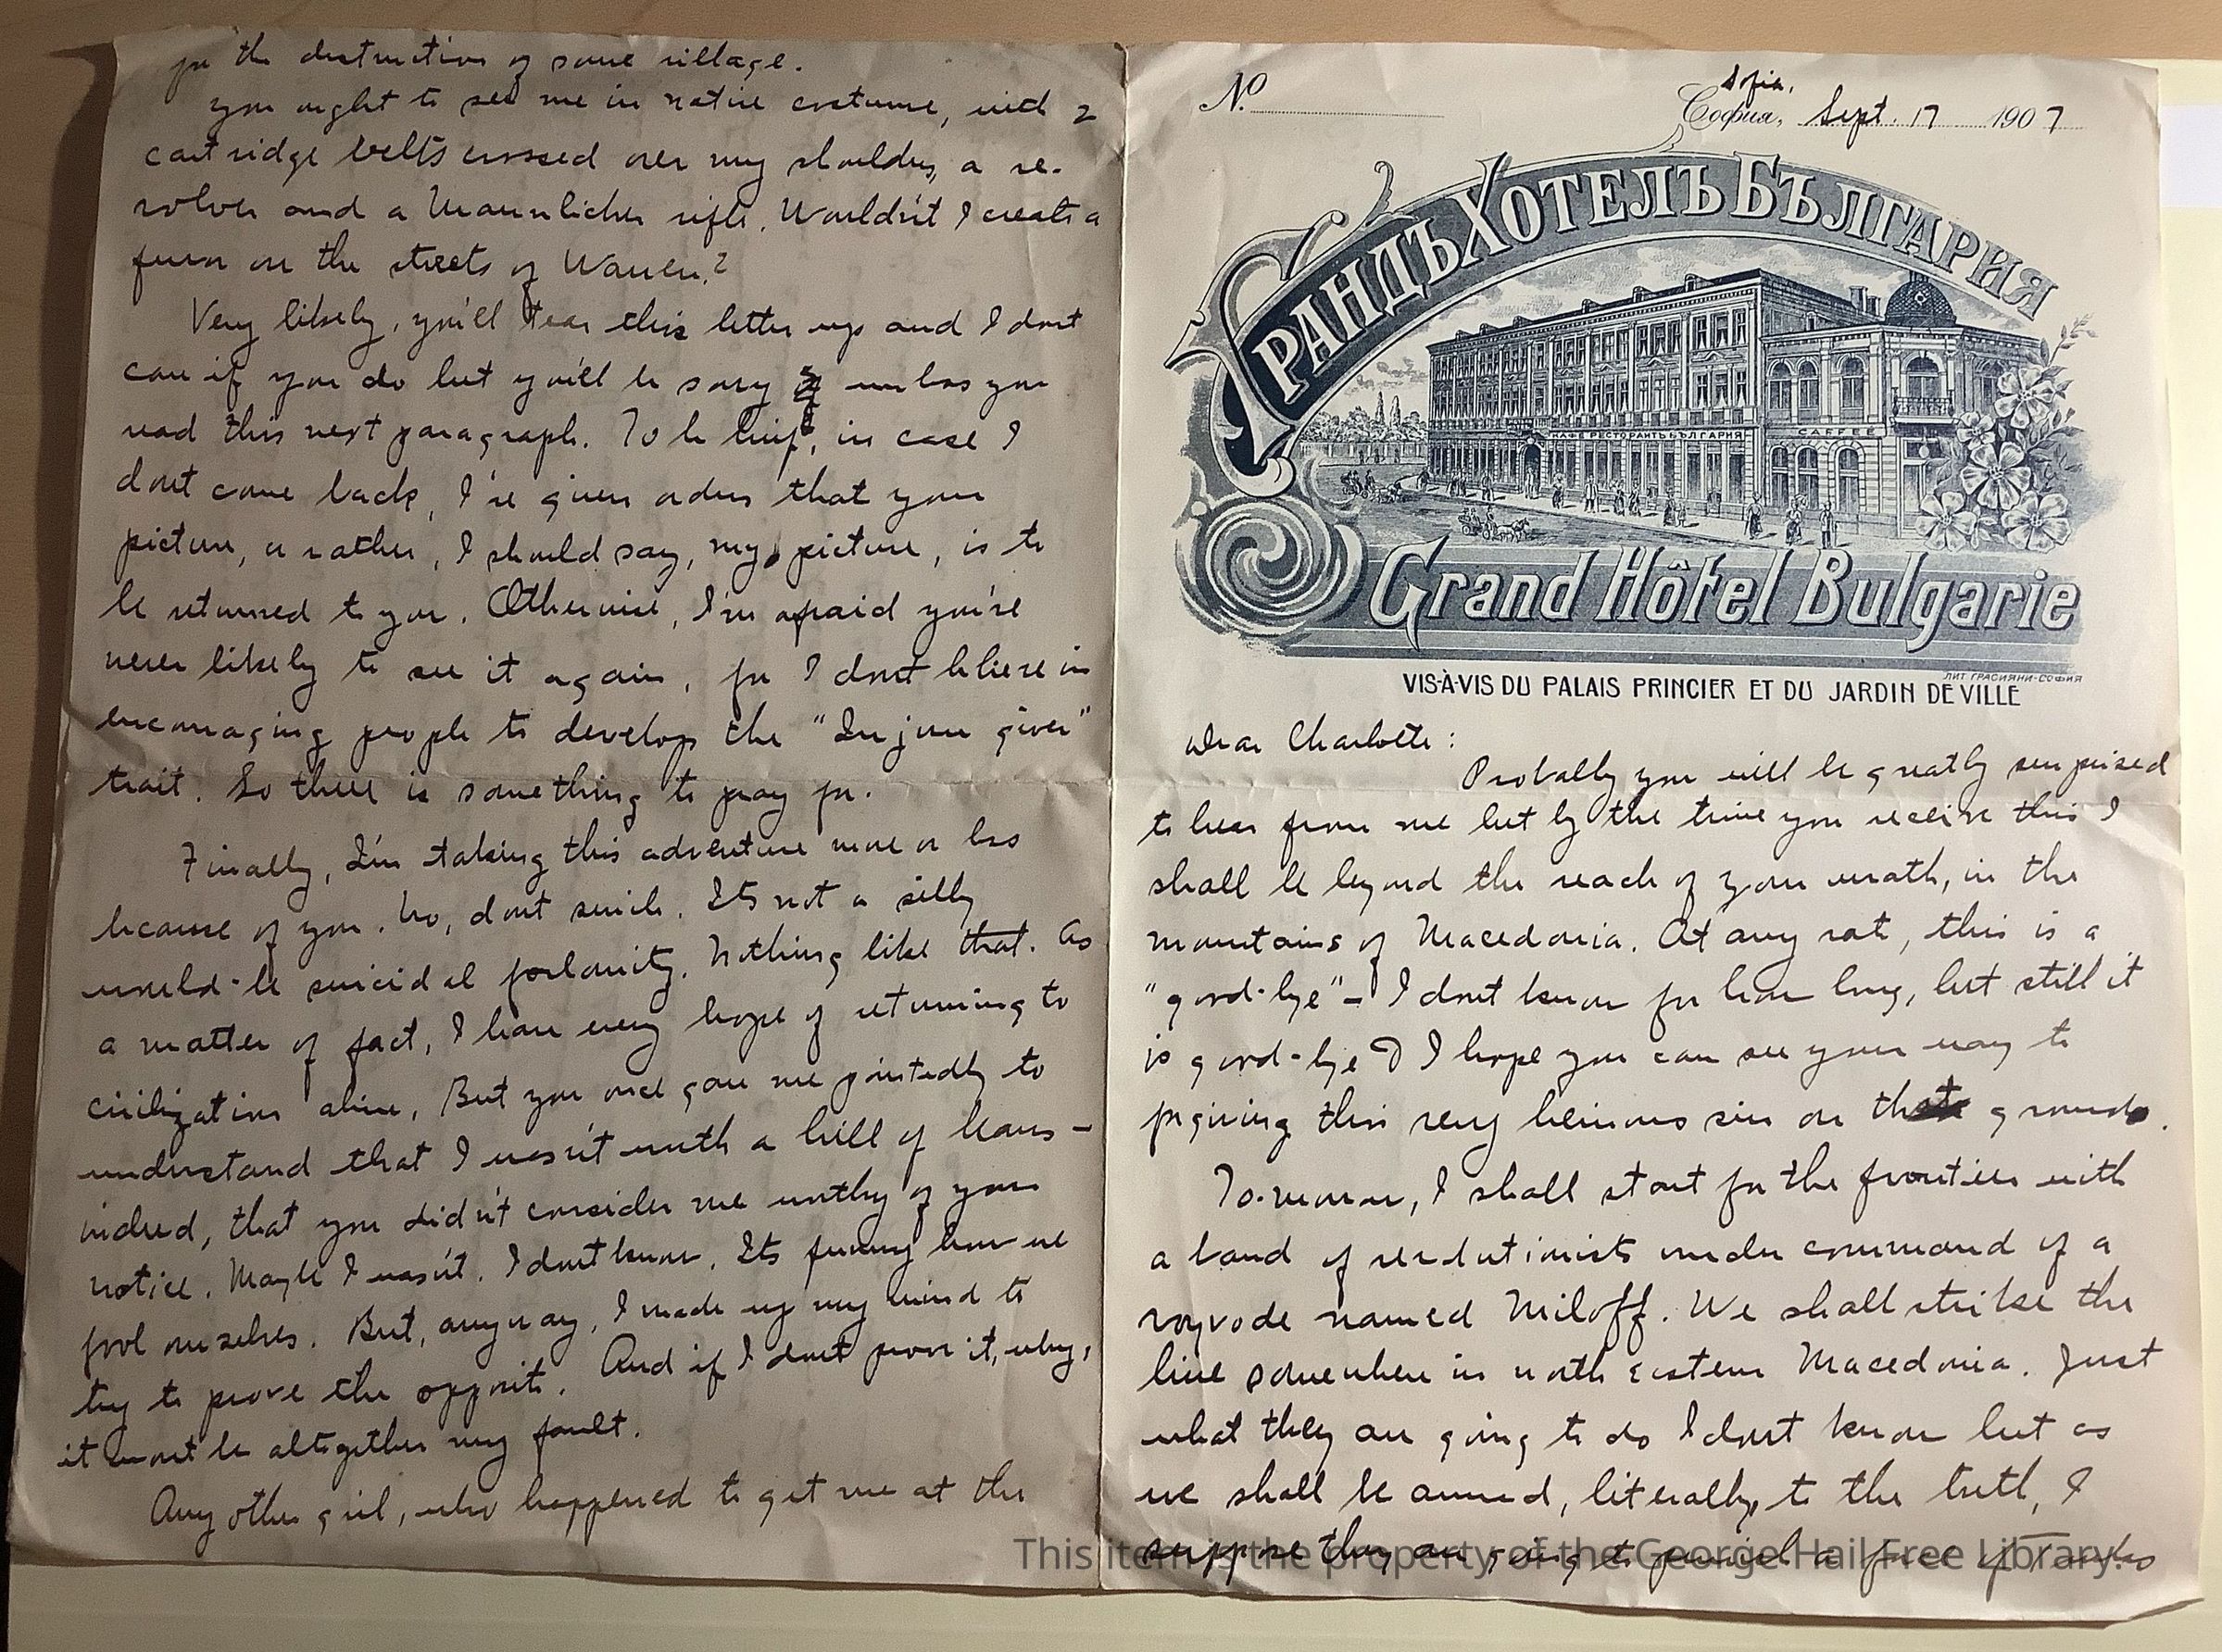 No.
Sofia,
София, Sept. 17 1907
ГРАНДЪ ХОТЕЛЪ БЪЛГАРИЯ
КАФЕ РЕСТОРАНТЪ БЪЛГАРИЯ
CAFFÉE
Grand Hôtel Bulgarie
ЛИТ ГРАСИЯНИ-СОФИЯ
VIS-À-VIS DU PALAIS PRINCIER ET DU JARDIN DE VILLE
Dear Charlotte:
Probably you will be greatly surprised
to hear from me but by the time you receive this I
shall be beyond the reach of your wrath, in the
mountains of Macedonia. At any rate, this is a
"good-bye" – I don't know for how long, but still it
is good-bye I hope you can see your way to
forgiving this very heinous sin on grounds.
To-morrow, I shall start for the frontier with
a band of revolutionists under command of a
voyvode named Miloff. We shall strike the
line somewhere in north eastern Macedonia. Just
what they are going to do I don't know but as
we shall be armed, literally, to the teeth, I
suppose they are going to punish a force of Turks
for the destruction of some village.
You ought to see me in native costume, with 2
cartridge belts crossed over my shoulders, a re-
volver and a Mannlicher rifle. Wouldn't I create a
furor on the streets of Warren?
Very likely, you'll tear this letter up and I dont
care if you do but you'll be sorry unless you
read this next paragraph. To be brief, in case I
dont come back, I've given orders that your
picture, or rather, I should say, my picture, is to
be returned to you. Otherwise, I'm afraid you're
never likely to see it again, for I don't believe in
encouraging people to develop the "Injun giver"
trait. So there is something to pray for.
Finally, I'm taking this adventure more or less
because of you. No, dont smile. Its not a silly
would-be suicidal forlornity. Nothing like that. As
a matter of fact, I have every hope of returning to
civilization alive. But you once gave me pointedly to
understand that I wasn't worth a hill of beans –
indeed, that you didn't consider me worthy of your
notice. Maybe I wasn't. I dont know. Its funny how we
fool ourselves. But, anyway, I made up my mind to
try to prove the opposite. And if I dont prove it, why,
it wont be altogether my fault.
Any other girl, who happened to get me at the
This item is the property of the George Hail Free Library.